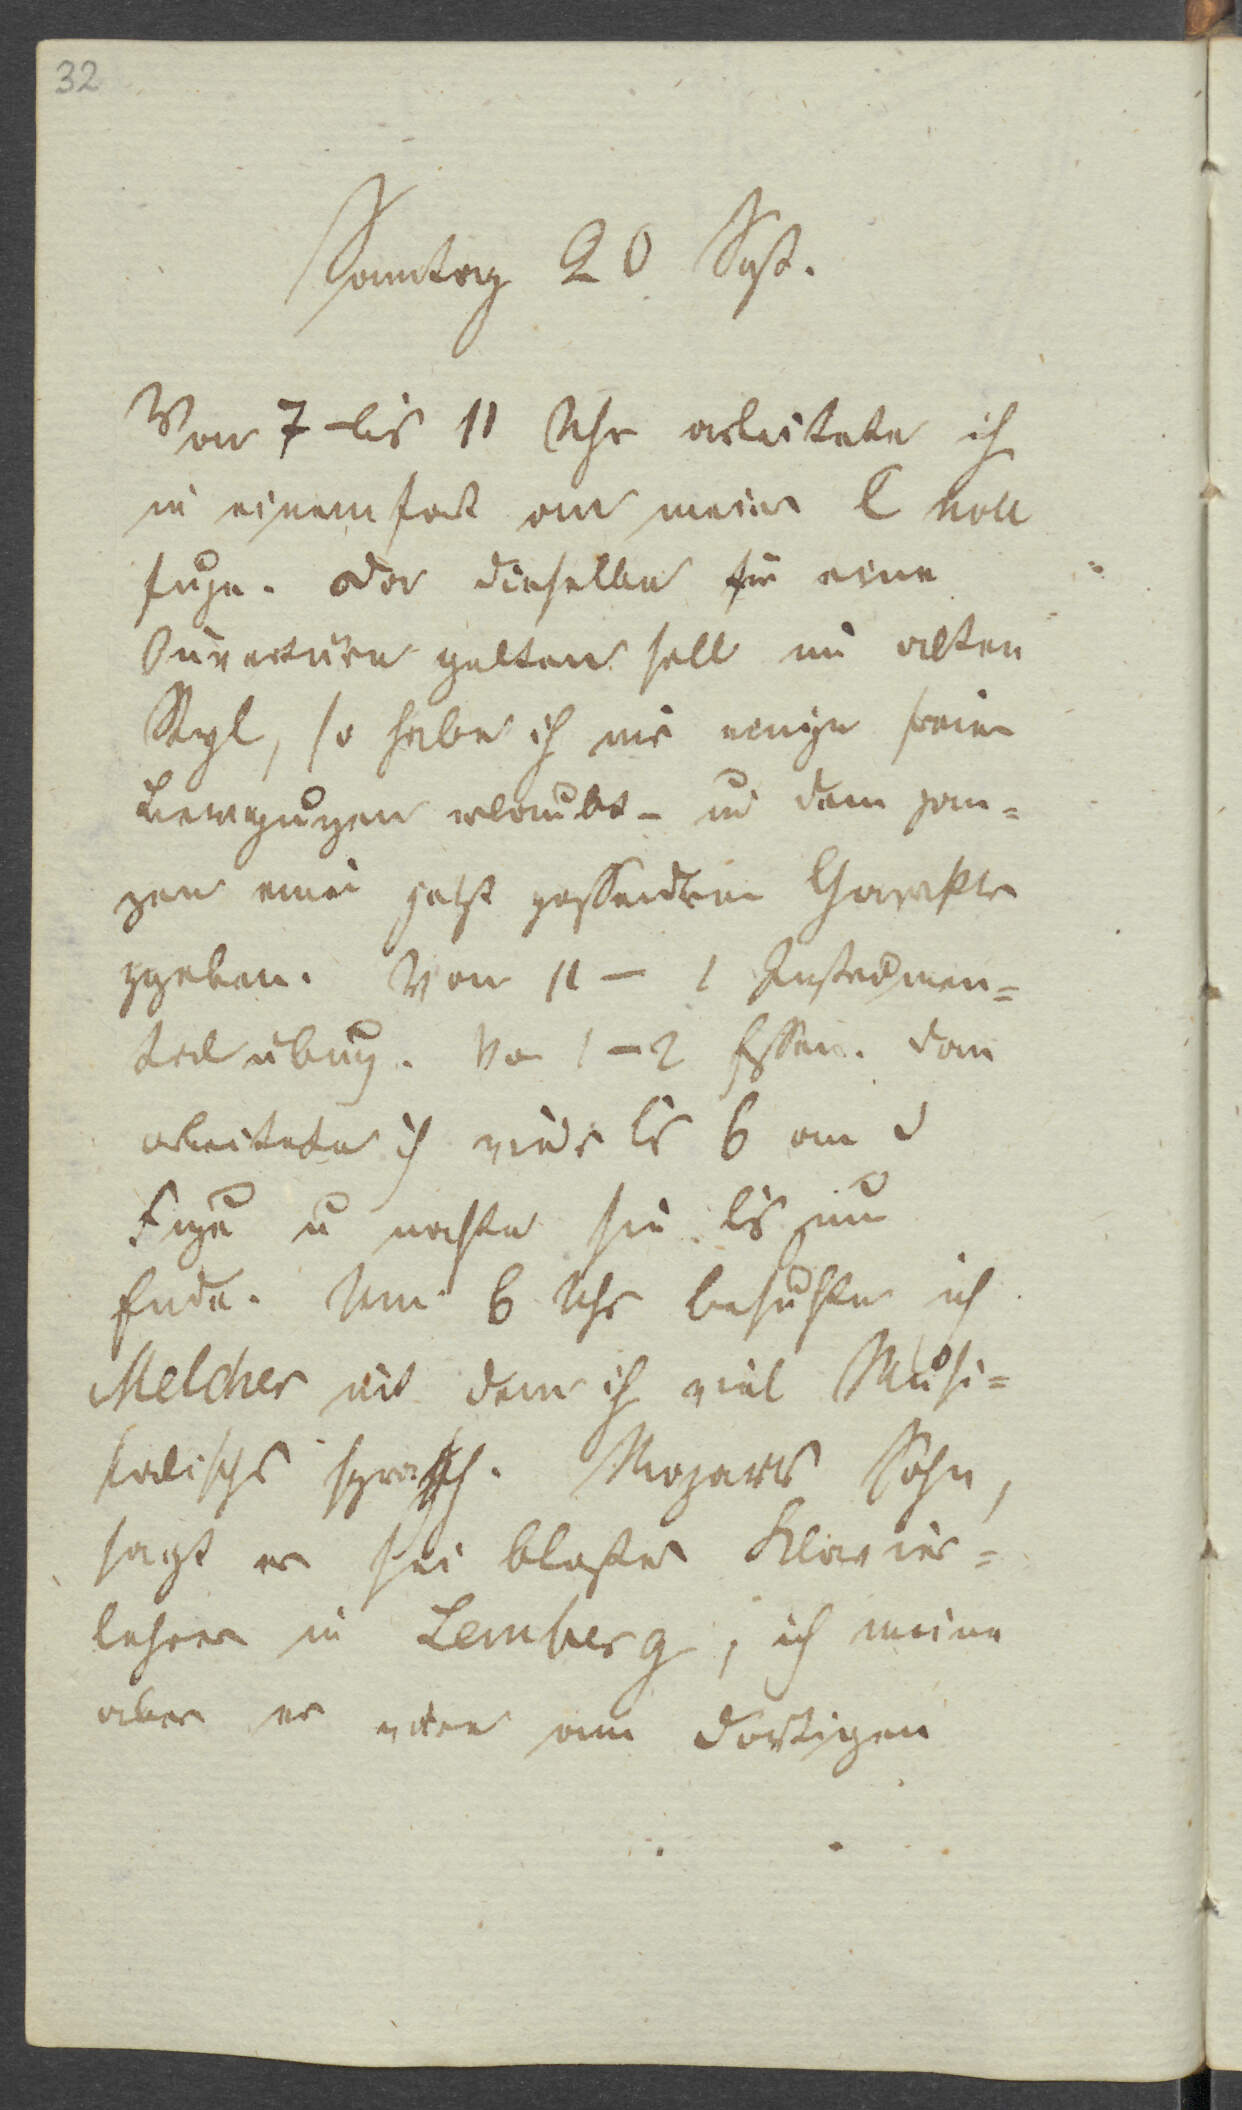 32
Sonntag 20 Sept.
Von 7 bis 11 Uhr arbeitete ich
in einemfort an meiner C moll
fuge. Da dieselbe für eine
Ouverture gelten soll im alten
Styl, so habe ich mir einige freie
Bewegungen erlaubt und dem gan=
zen einen jetzt passendern Charakter
gegeben. Von 11 – 1 Instrumen=
talübung. Von 1–2 Essen. Dann
arbeitete ich wieder bis 6 an d
Fuge u machte sie bis zum
Ende. Um 6 Uhr besuchte ich
Melcher mit dem ich viel Musi=
kalisches sprach. Mozarts Sohn,
sagt er sei bloßer Klavier=
lehrer in Lemberg, ich meine
aber er wäre am dortigen